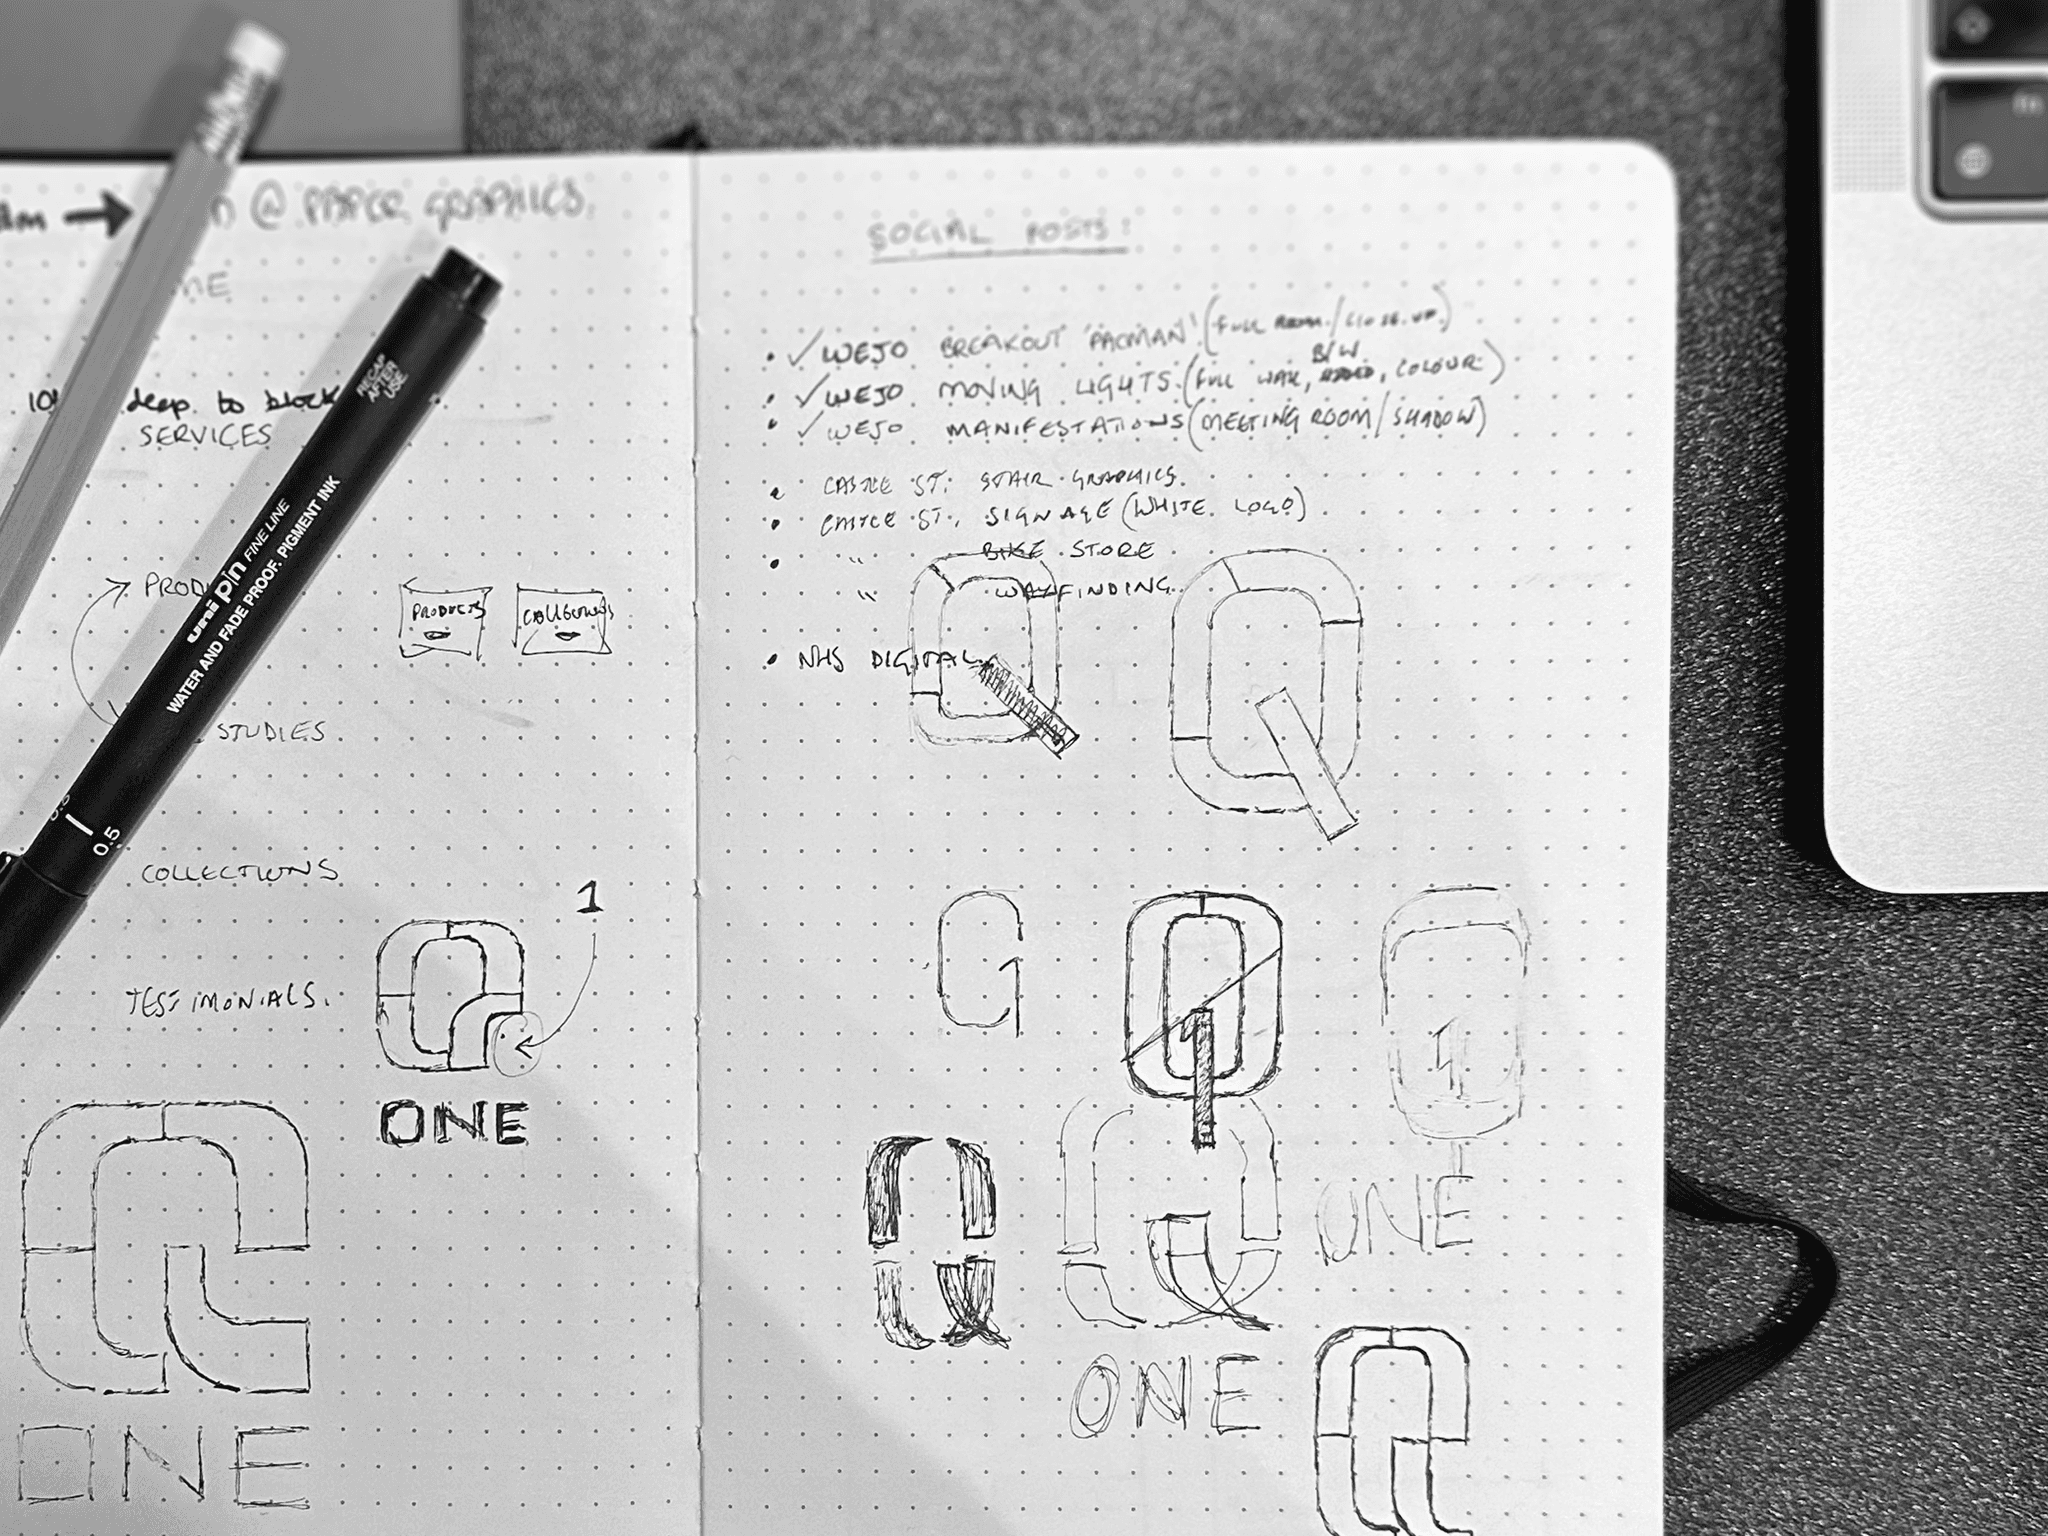 @ PAPER GRAPHICS.
deep to block
SERVICES
PRODUCTS
COLLECTIONS
STUDIES
COLLECTIONS
1
TESTIMONIALS.
ONE
ONE
RECAP
AFTER
USE
uni pin FINE LINE
WATER AND FADE PROOF. PIGMENT INK
0.5
SOCIAL POSTS:
• ✓ WEJO BREAKOUT 'PACMAN' (FULL ROOM/CLOSE UP.)
B/W
• ✓ WEJO MOVING LIGHTS. (FULL WALL, COLOUR)
• ✓ WEJO MANIFESTATIONS (MEETING ROOM/SHADOW)
• CASTLE ST. STAIR GRAPHICS.
• CASTLE ST. SIGNAGE (WHITE LOGO)
• " BIKE STORE
" WAYFINDING.
• NHS DIGITAL.
Q
Q
G
Q
ONE
ONE
fn